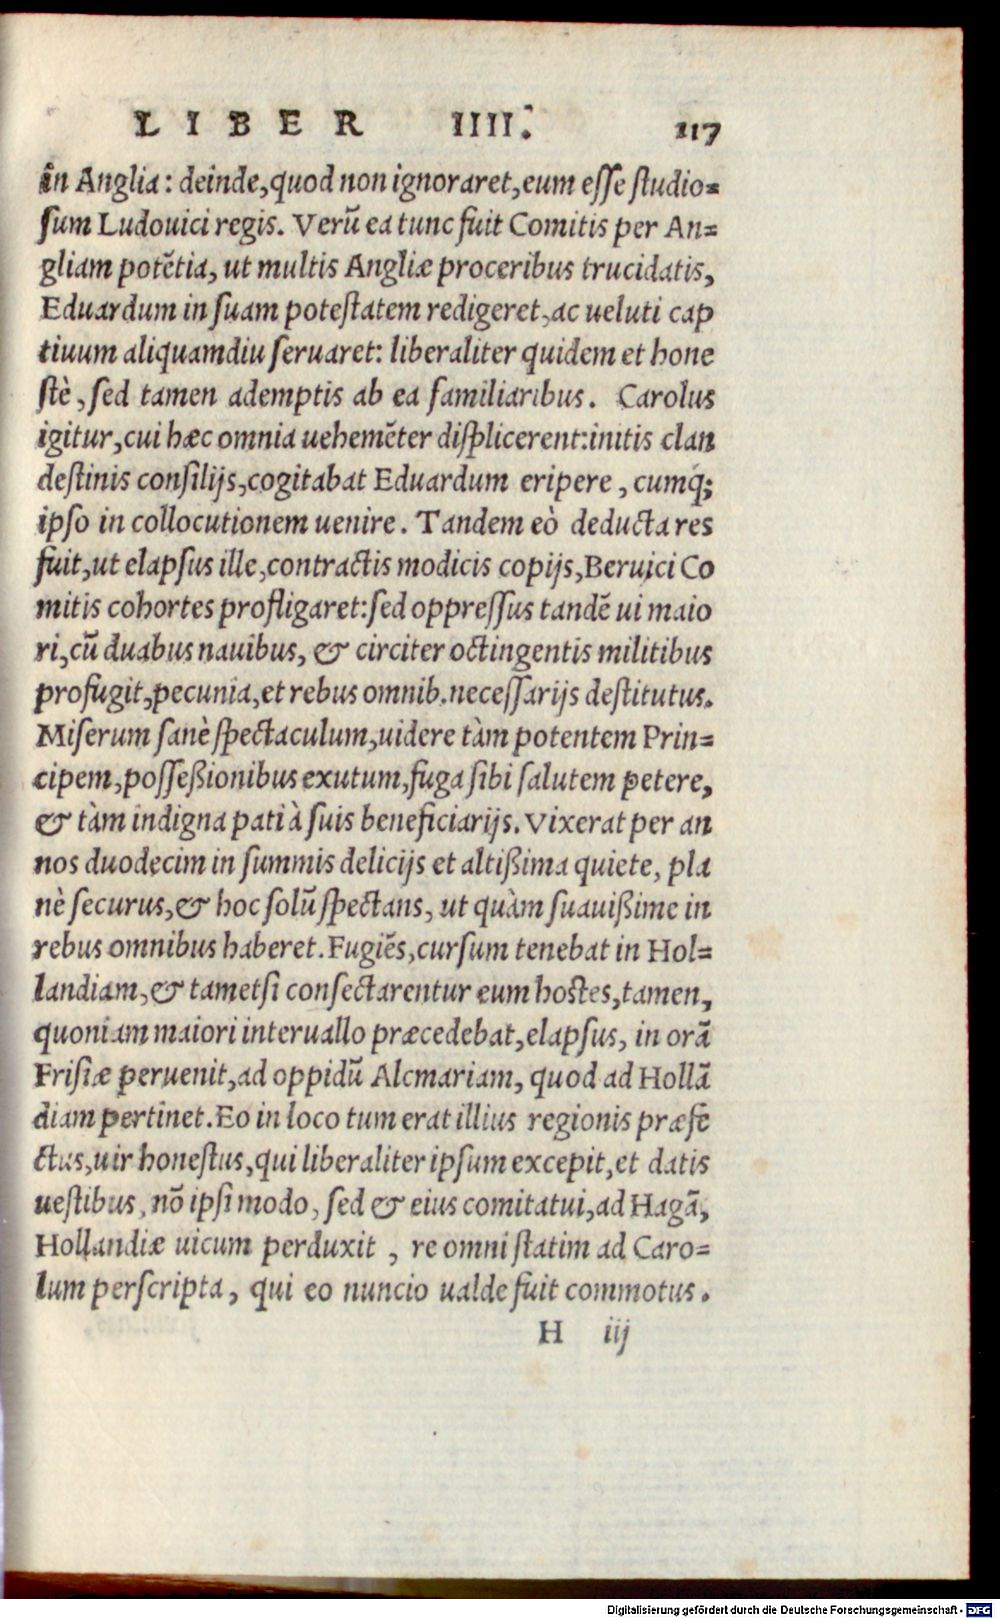 LIBER IIII. 117
in Anglia: deinde, quod non ignoraret, eum eſſe ſtudio=
ſum Ludouici regis. Verũ ea tunc fuit Comitis per An=
gliam potẽtia, ut multis Angliæ proceribus trucidatis,
Eduardum in ſuam poteſtatem redigeret, ac ueluti cap
tiuum aliquamdiu ſeruaret: liberaliter quidem et hone
ſtè, ſed tamen ademptis ab ea familiaribus. Carolus
igitur, cui hæc omnia uehemẽter diſplicerent: initis clan
deſtinis conſilijs, cogitabat Eduardum eripere, cumq́;
ipſo in collocutionem uenire. Tandem eò deducta res
fuit, ut elapſus ille, contractis modicis copijs, Beruici Co
mitis cohortes profligaret: ſed oppreſſus tandẽ ui maio
ri, cũ duabus nauibus, & circiter octingentis militibus
profugit, pecunia, et rebus omnib. neceſſarijs deſtitutus.
Miſerum ſanè ſpectaculum, uidere tàm potentem Prin=
cipem, poſſeßionibus exutum, fuga ſibi ſalutem petere,
& tàm indigna pati à ſuis beneficiarijs. Vixerat per an
nos duodecim in ſummis delicijs et altißima quiete, pla
nè ſecurus, & hoc ſolũ ſpectans, ut quàm ſuauißime in
rebus omnibus haberet. Fugiẽs, curſum tenebat in Hol=
landiam, & tametſi conſectarentur eum hoſtes, tamen,
quoniam maiori interuallo præcedebat, elapſus, in orã
Friſiæ peruenit, ad oppidũ Alcmariam, quod ad Hollã
diam pertinet. Eo in loco tum erat illius regionis præfe
ctus, uir honeſtus, qui liberaliter ipſum excepit, et datis
ueſtibus, nõ ipſi modo, ſed & eius comitatui, ad Hagã,
Hollandiæ uicum perduxit, re omni ſtatim ad Caro=
lum perſcripta, qui eo nuncio ualde fuit commotus.
H iij
Digitalisierung gefördert durch die Deutsche Forschungsgemeinschaft - DFG